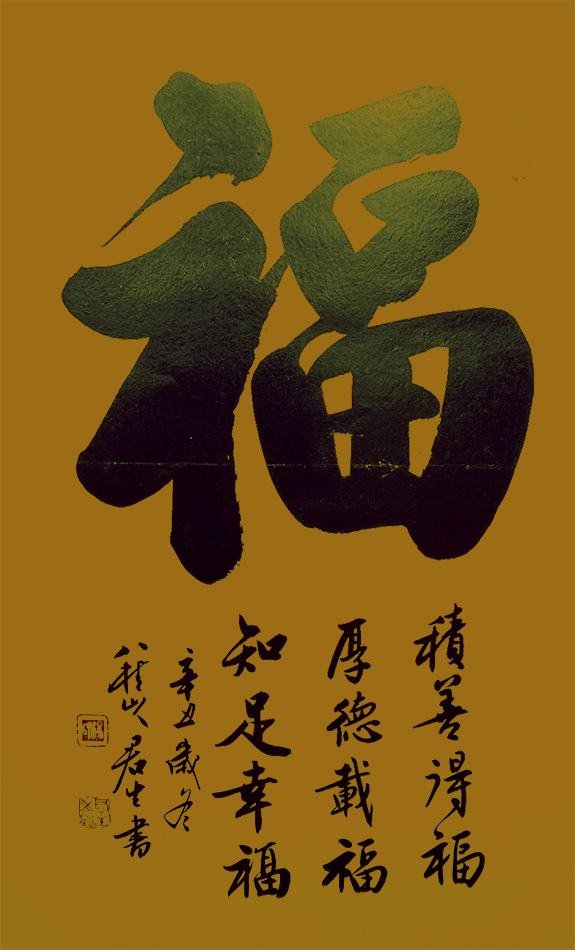 福
積善得福
厚德載福
知足幸福
辛丑歲冬
君生書